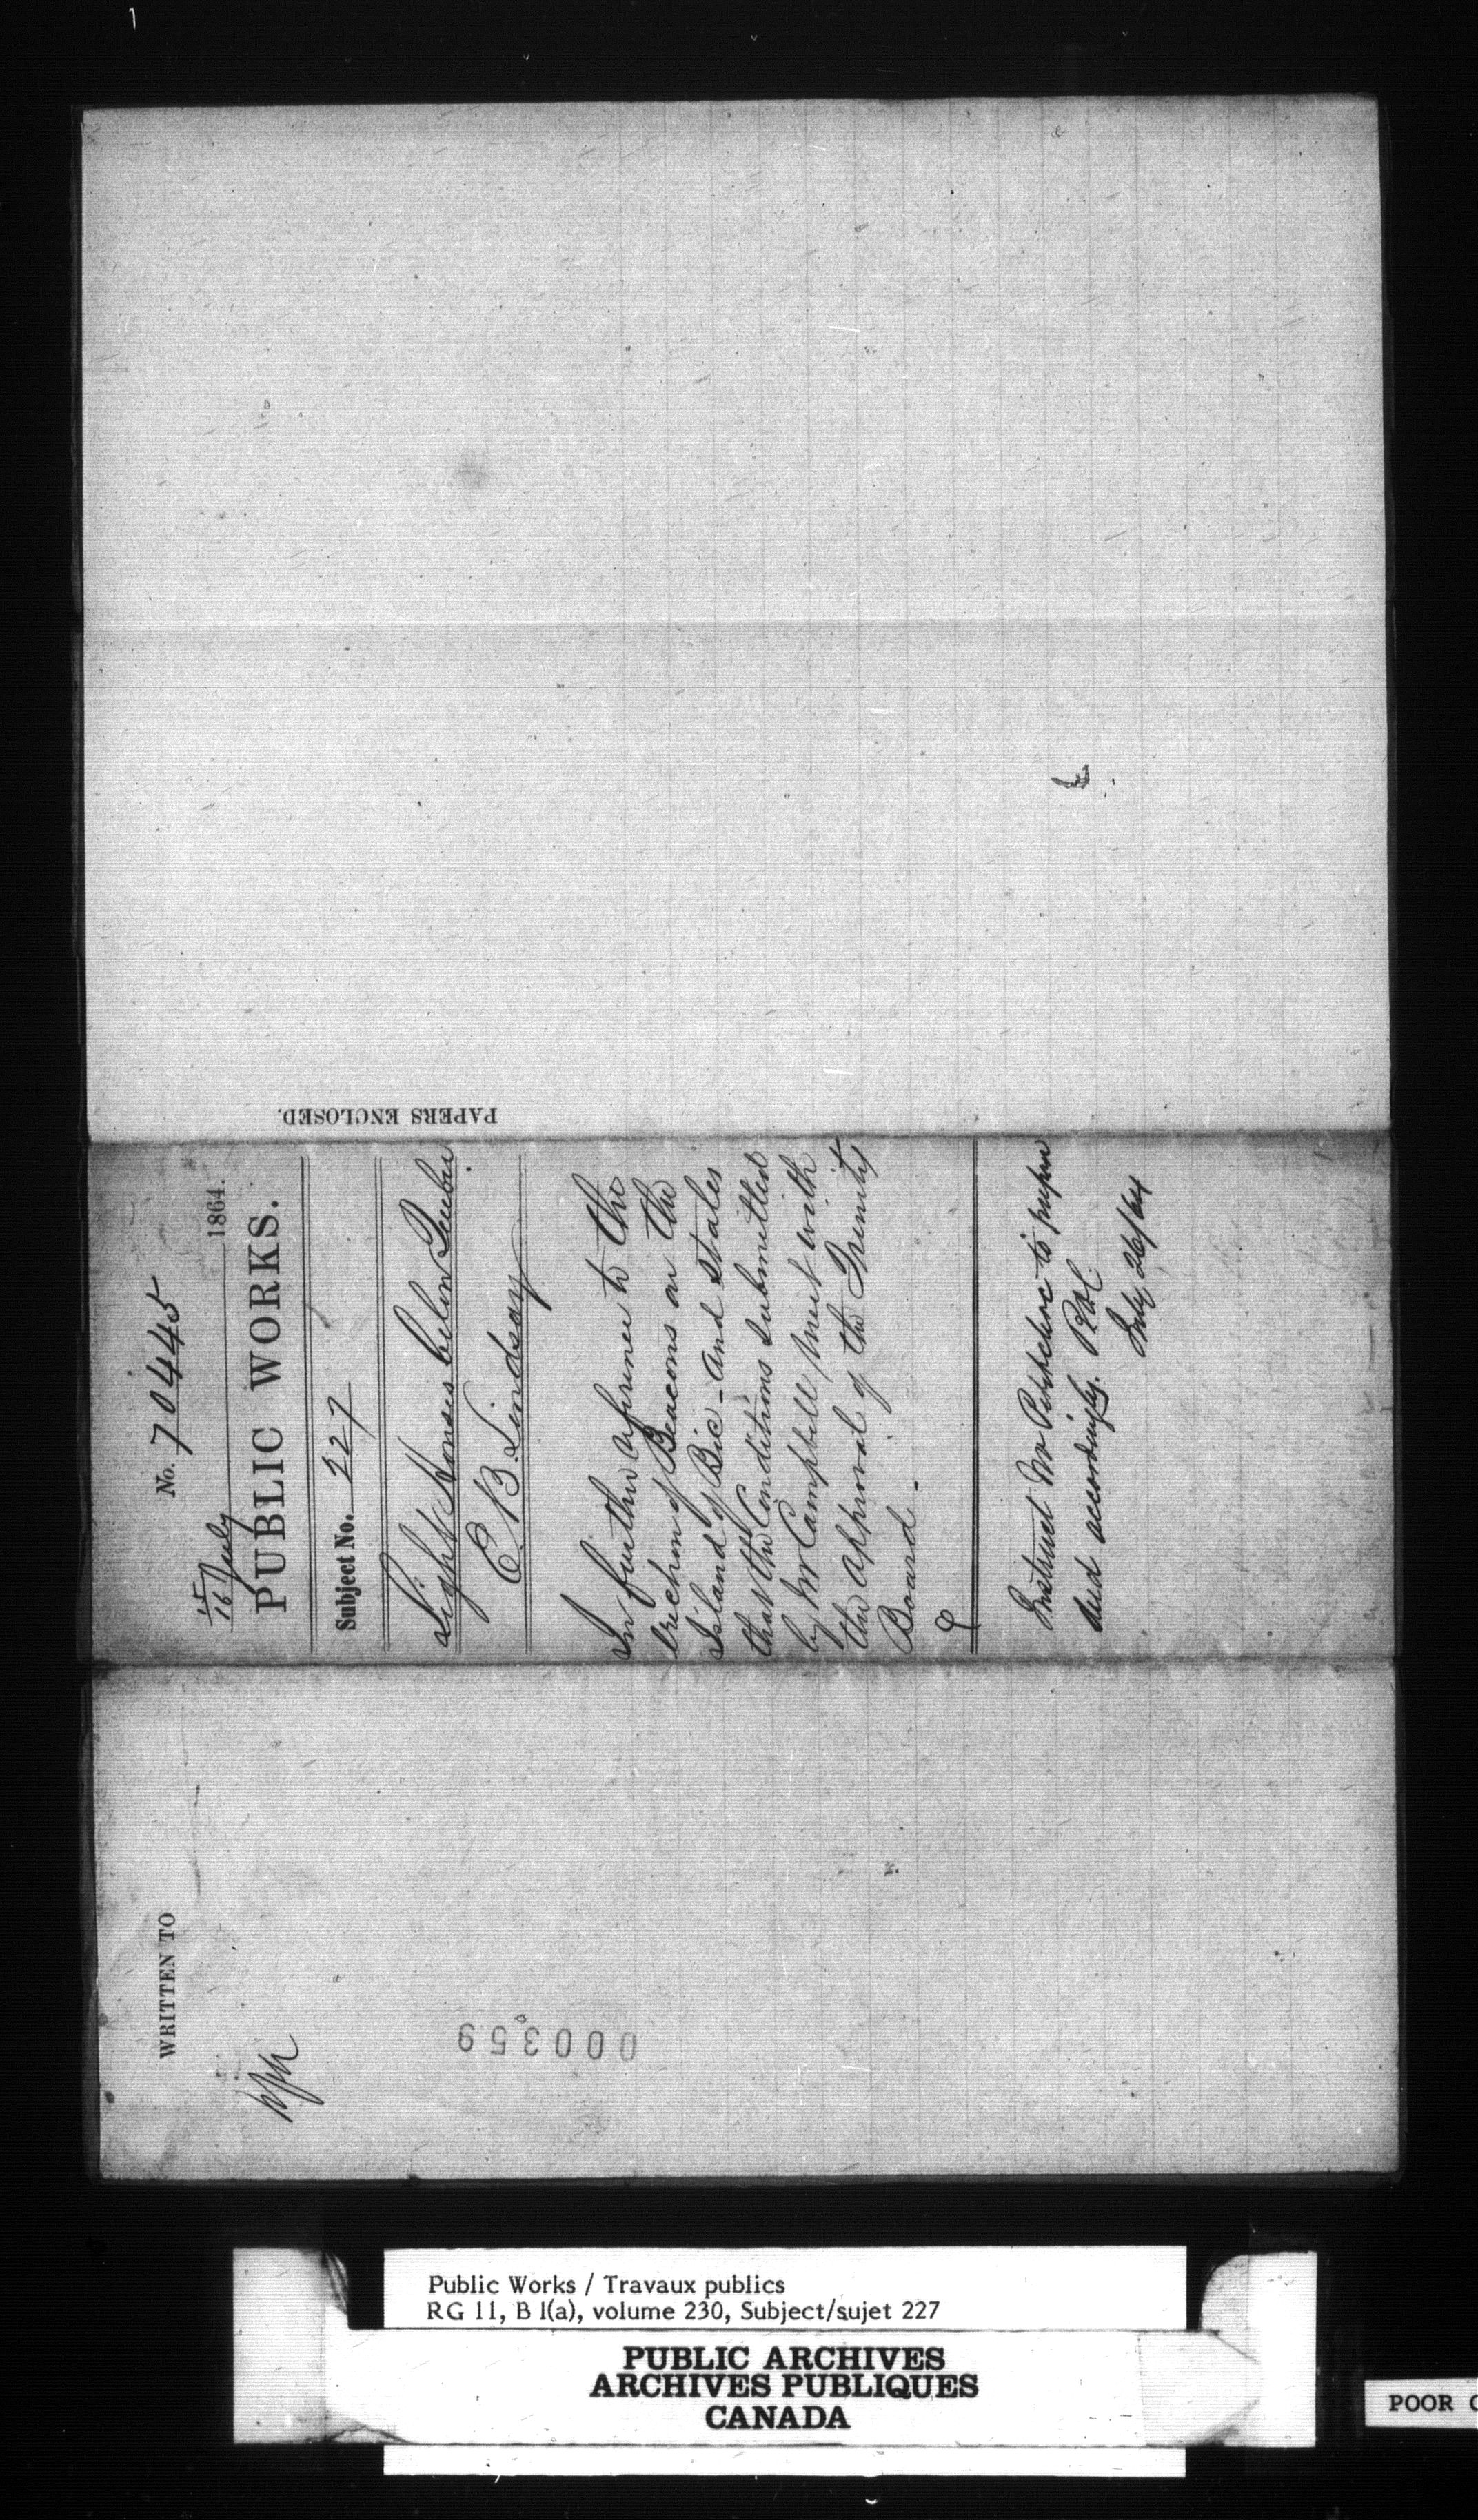 No. 70445
15
16 July 1864.
PUBLIC WORKS.
Subject No. 227
Light Houses below Quebec
E. B. Lindsay
In further reference to the
erection of Beacons on the
Island of Bic - and states
that the Conditions submitted
by Mr Campbell meet with
the approval of the Trinity
Board -
Instruct Mr to prepare
deed accordingly.
July 26/64
PAPERS ENCLOSED.
WRITTEN TO
000359
Public Works / Travaux publics
RG 11, B 1(a), volume 230, Subject/sujet 227
PUBLIC ARCHIVES
ARCHIVES PUBLIQUES
CANADA
POOR